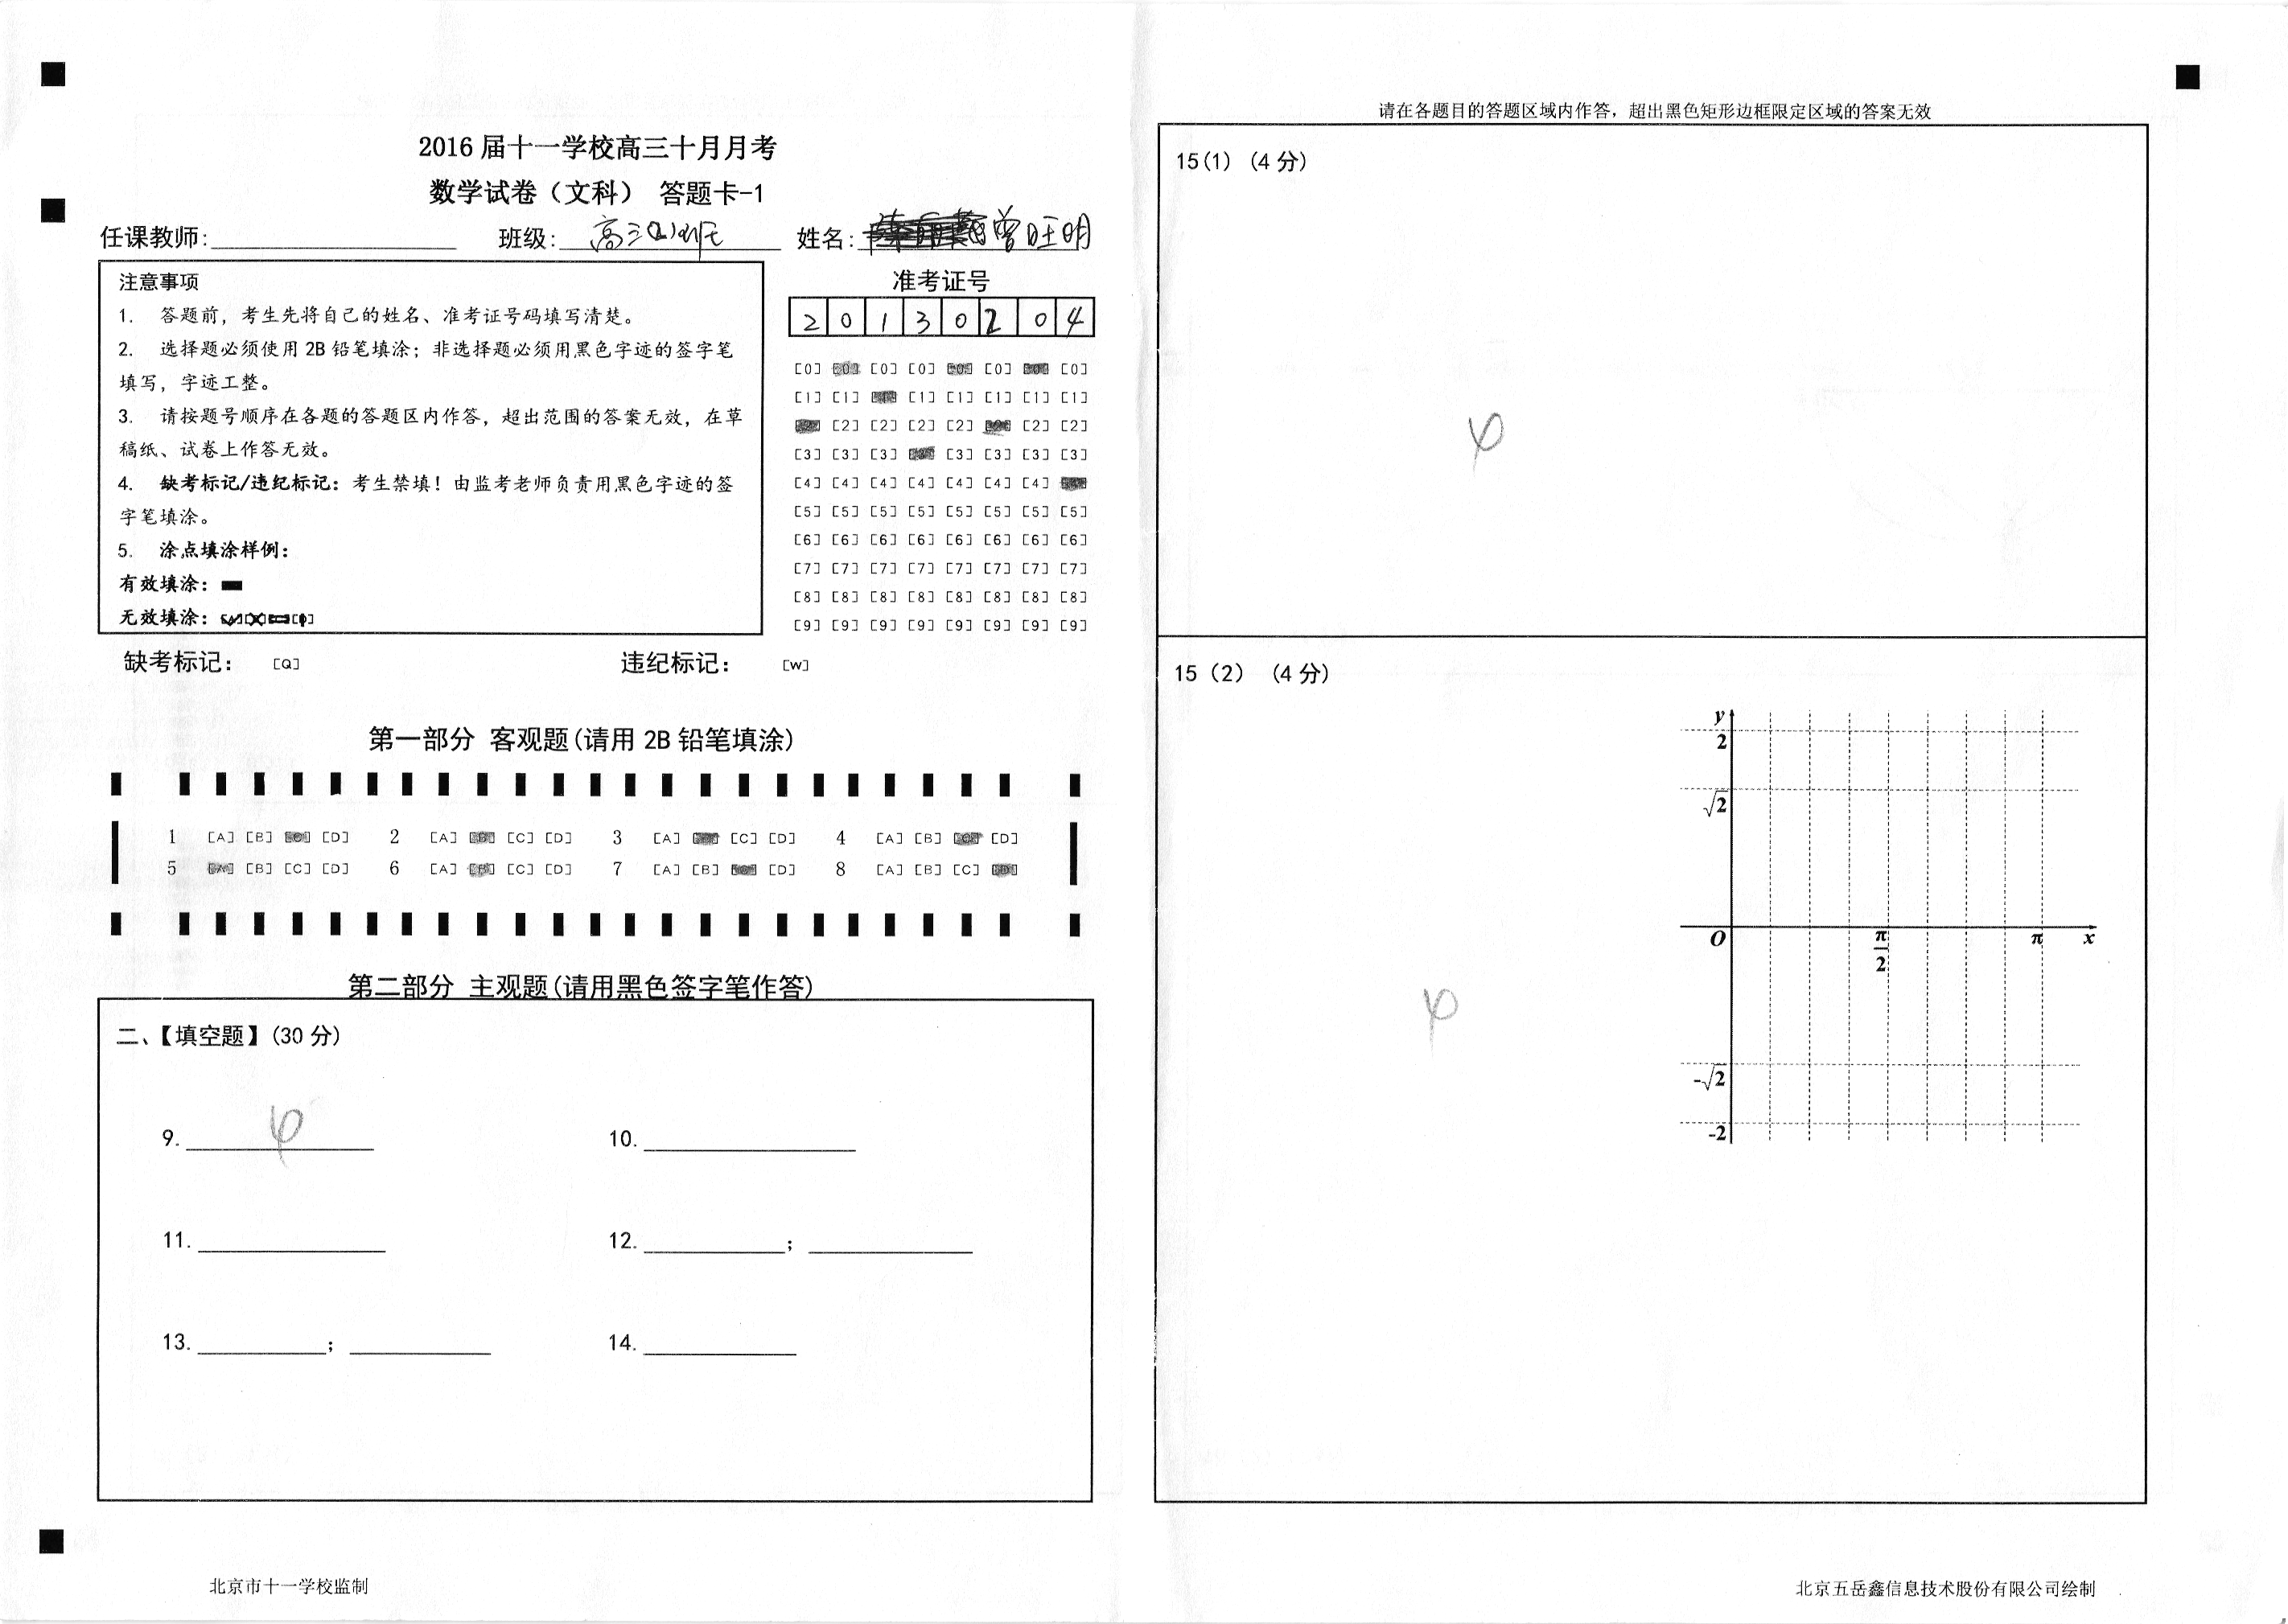 2016届十一学校高三十月月考
数学试卷（文科） 答题卡-1
任课教师: 班级: 高三(2)班 姓名: 曾旺明
注意事项
1. 答题前，考生先将自己的姓名、准考证号码填写清楚。
2. 选择题必须使用2B铅笔填涂；非选择题必须用黑色字迹的签字笔
填写，字迹工整。
3. 请按题号顺序在各题的答题区内作答，超出范围的答案无效，在草
稿纸、试卷上作答无效。
4. 缺考标记/违纪标记：考生禁填！由监考老师负责用黑色字迹的签
字笔填涂。
5. 涂点填涂样例：
有效填涂：
无效填涂：
准考证号
2 0 1 3 0 2 0 4
[0] [0] [0] [0] [0] [0] [0] [0]
[1] [1] [1] [1] [1] [1] [1]
[2] [2] [2] [2] [2] [2]
[3] [3] [3] [3] [3] [3] [3]
[4] [4] [4] [4] [4] [4] [4]
[5] [5] [5] [5] [5] [5] [5] [5]
[6] [6] [6] [6] [6] [6] [6] [6]
[7] [7] [7] [7] [7] [7] [7] [7]
[8] [8] [8] [8] [8] [8] [8] [8]
[9] [9] [9] [9] [9] [9] [9] [9]
缺考标记： [Q] 违纪标记： [W]
第一部分 客观题(请用2B铅笔填涂)
1 [A] [B] [C] [D] 2 [A] [B] [C] [D] 3 [A] [C] [D] 4 [A] [B] [C] [D]
5 [A] [B] [C] [D] 6 [A] [B] [C] [D] 7 [A] [B] [D] 8 [A] [B] [C] [D]
第二部分 主观题(请用黑色签字笔作答)
二、【填空题】(30分)
9. φ 10.
11. 12. ;
13. ; 14.
北京市十一学校监制
请在各题目的答题区域内作答，超出黑色矩形边框限定区域的答案无效
15(1) (4分)
φ
15（2） (4分)
φ
y
2
√2
O π/2 π x
-√2
-2
北京五岳鑫信息技术股份有限公司绘制